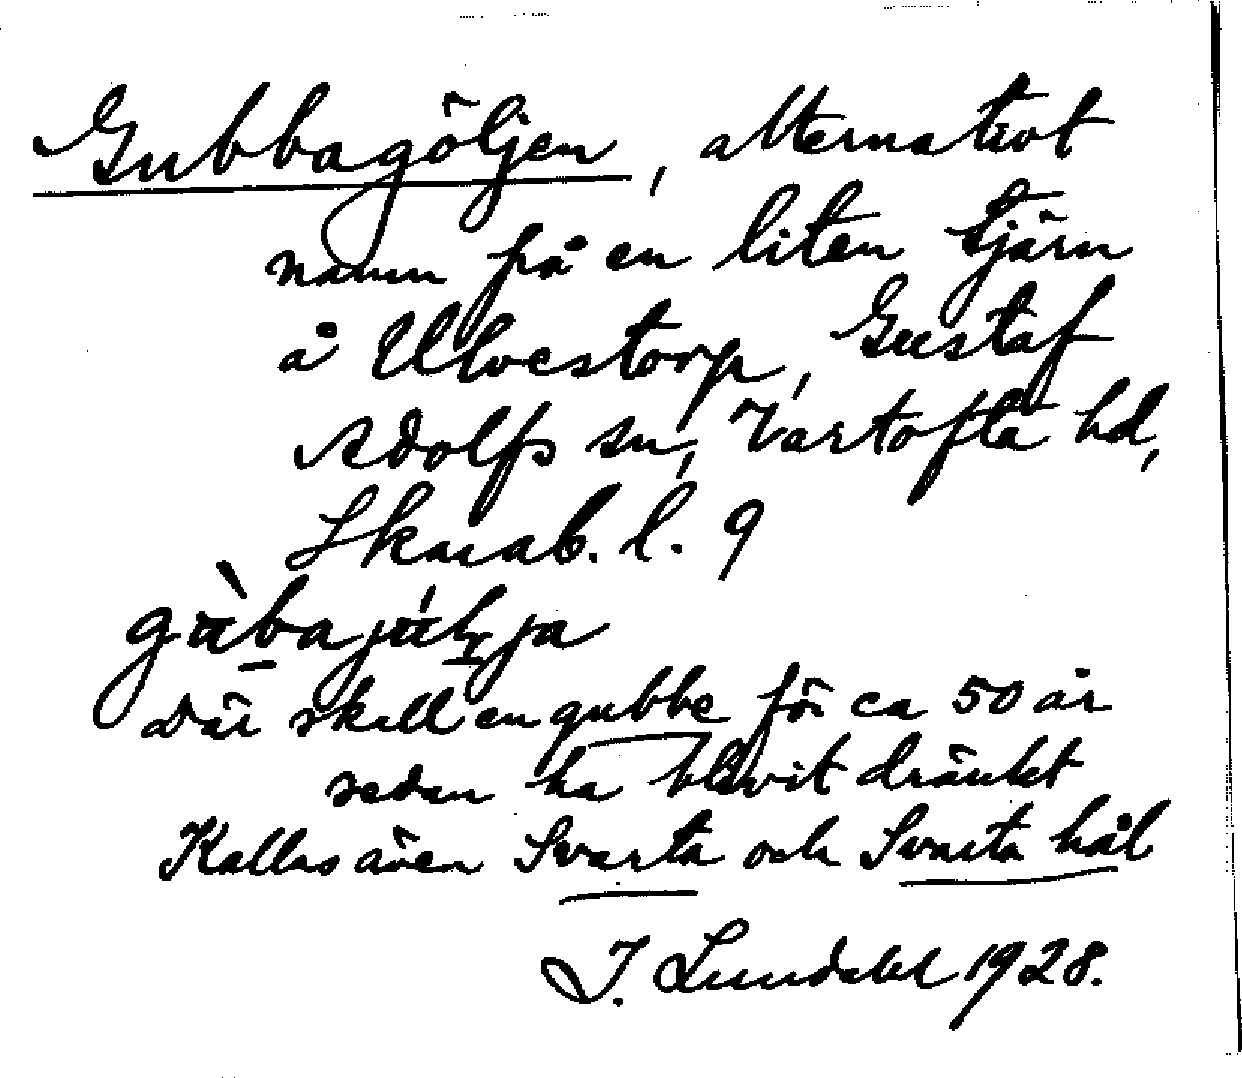 Gubbagöljen, alternativt
namn på en liten tjärn
å Ulvestorp, Gustaf
Adolfs sn, Vartofta hd,
Skarab. l. 9
Där skall en gubbe för ca 50 år
sedan ha blivit dränkt
Kallas även Svarta och Svarta hål
J. Lundahl 1928.